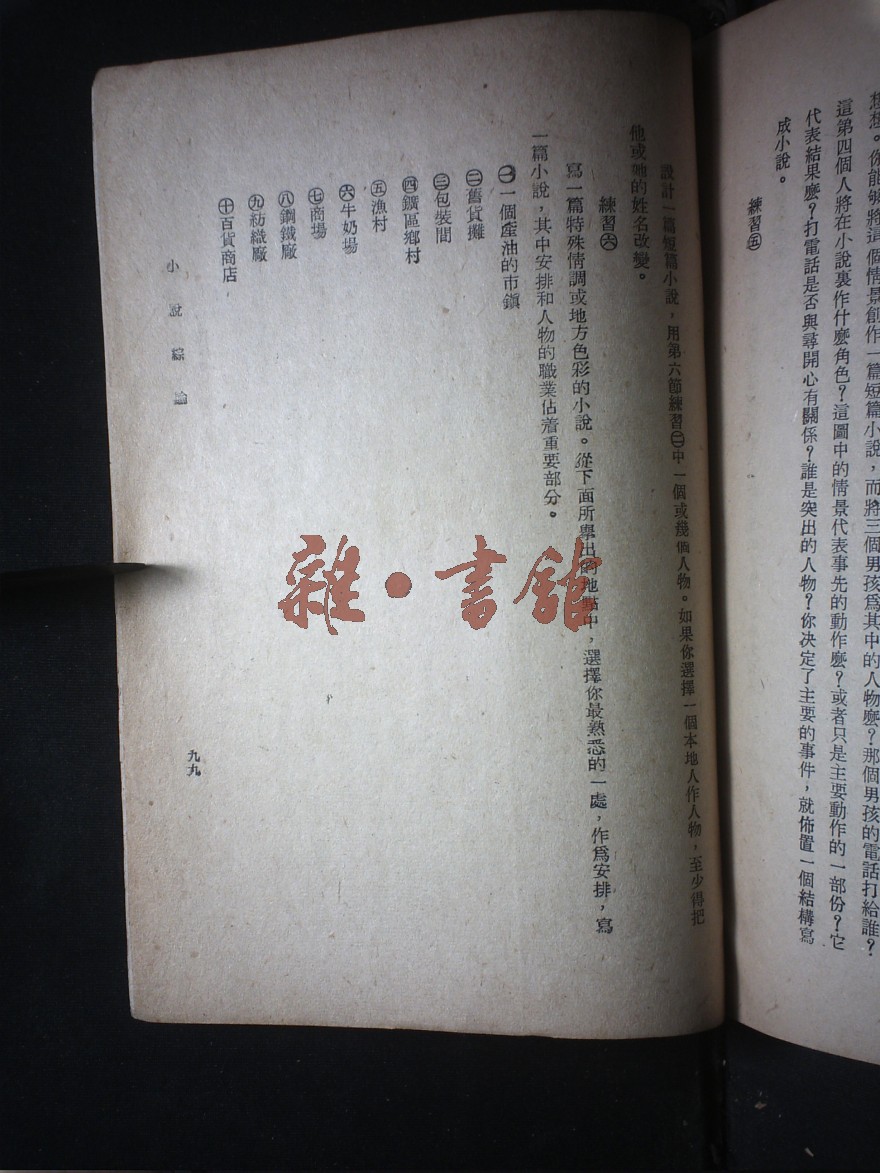 想想。你能够將這個情景創作一篇短篇小說,而將三個男孩爲其中的人物麽?那個男孩的電話打給誰?
這第四個人將在小說裏作什麽角色?這圖中的情景代表事先的動作麽?或者只是主要動作的一部份?它
代表結果麽?打電話是否與尋開心有關係?誰是突出的人物?你決定了主要的事件,就佈置一個結構寫
成小說。
練習㊄
設計一篇短篇小說,用第六節練習㊁中一個或幾個人物。如果你選擇一個本地人作人物,至少得把
他或她的姓名改變。
練習㊅
寫一篇特殊情調或地方色彩的小說。從下面所舉出的地點中,選擇你最熟悉的一處,作爲安排,寫
一篇小說,其中安排和人物的職業佔着重要部分。
㊀一個產油的市鎭
㊁舊貨攤
㊂包裝間
㊃鑛區鄉村
㊄漁村
㊅牛奶場
㊆商場
㊇鋼鐵廠
㊈紡織廠
㊉百貨商店
小說綜論
九九
雜·書館